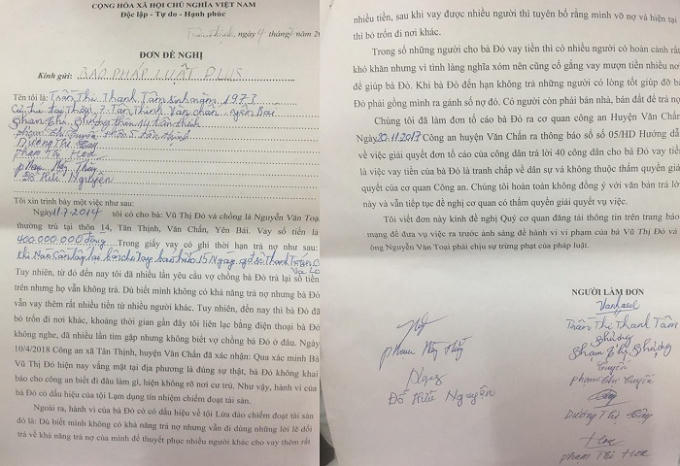 CỘNG HÒA XÃ HỘI CHỦ NGHĨA VIỆT NAM
Độc lập - Tự do - Hạnh phúc
Tân Thịnh, ngày 4 tháng
ĐƠN ĐỀ NGHỊ
Kính gửi: BÁO PHÁP LUẬT PLUS
Tên tôi là: Trần Thị Thanh Tâm sinh năm 1973
Cư trú tại Thôn 7 Tân Thịnh, Văn chấn, yên Bái
phạm thị phượng thôn 14 tân thịnh
phạm thị tuyên thôn 5 tân thịnh
Dương Thị
phạm Thị Hoe
phạm Hồng Thủy
Đỗ Hữu Nguyên
Tôi xin trình bày một việc như sau:
Ngày 11.7.2014 tôi có cho bà: Vũ Thị Đỏ và chồng là Nguyễn Văn Toại
thường trú tại thôn 14, Tân Thịnh, Văn Chấn, Yên Bái. Vay số tiền là
400.000.000 đồng. Trong giấy vay có ghi thời hạn trả nợ như sau:
khi Nào Cần lấy lại báo cho Vay báo trước 15 Ngày
Tuy nhiên, từ đó đến nay tôi đã nhiều lần yêu cầu vợ chồng bà Đỏ trả lại số tiền
trên nhưng họ vẫn không trả. Dù biết mình không có khả năng trả nợ nhưng bà Đỏ
vẫn vay thêm rất nhiều tiền từ nhiều người khác. Tuy nhiên, đến nay thì bà Đỏ đã
bỏ trốn đi nơi khác, khoảng thời gian gần đây tôi liên lạc bằng điện thoại bà Đỏ
không nghe, đã nhiều lần tìm gặp nhưng không biết vợ chồng bà Đỏ ở đâu. Ngày
10/4/2018 Công an xã Tân Thịnh, huyện Văn Chấn đã xác nhận: Qua xác minh Bà
Vũ Thị Đỏ hiện nay vắng mặt tại địa phương là đúng sự thật, bà Đỏ không khai
báo cho công an biết đi đâu làm gì, hiện không rõ nơi cư trú. Như vậy, hành vi của
bà Đỏ có dấu hiệu của tội Lạm dụng tín nhiệm chiếm đoạt tài sản.
Ngoài ra, hành vi của bà Đỏ có có dấu hiệu về tội Lừa đảo chiếm đoạt tài sản
đó là: Dù biết mình không có khả năng trả nợ nhưng vẫn đi dùng những lời lẽ dối
trá về khả năng trả nợ của mình để thuyết phục nhiều người khác cho vay thêm rất
nhiều tiền, sau khi vay được nhiều người thì tuyên bố rằng mình vỡ nợ và hiện tại
thì bỏ trốn đi nơi khác.
Trong số những người cho bà Đỏ vay tiền thì có nhiều người có hoàn cảnh rất
khó khăn nhưng vì tình làng nghĩa xóm nên cũng cố gắng vay mượn tiền nhiều nơi
để giúp bà Đỏ. Khi bà Đỏ đến hạn không trả những người có lòng tốt giúp đỡ bà
Đỏ phải gồng mình ra gánh số nợ đó. Có người còn phải bán nhà, bán đất để trả nợ
Chúng tôi đã làm đơn tố cáo bà Đỏ ra cơ quan công an Huyện Văn Chấn
Ngày 30.11.2017 Công an huyện Văn Chấn ra thông báo số số 05/HD Hướng dẫn
về việc giải quyết đơn tố cáo của công dân trả lời 40 công dân cho bà Đỏ vay tiền
là việc vay tiền của bà Đỏ là tranh chấp về dân sự và không thuộc thẩm quyền giải
quyết của cơ quan Công an. Chúng tôi hoàn toàn không đồng ý với văn bản trả lời
này và vẫn tiếp tục đề nghị cơ quan có thẩm quyền giải quyết vụ việc.
Tôi viết đơn này kính đề nghị Quý cơ quan đăng tải thông tin trên trang báo
mạng để đưa vụ việc ra trước ánh sáng để hành vi vi phạm của bà Vũ Thị Đỏ và
ông Nguyễn Văn Toại phải chịu sự trừng phạt của pháp luật.
NGƯỜI LÀM ĐƠN
Trần Thị Thanh Tâm
phượng
phạm Thị phượng
tuyên
phạm thị tuyên
Dương Thị
Hoe
phạm Thị Hoe
phạm Hồng Thủy
Đỗ Hữu Nguyên